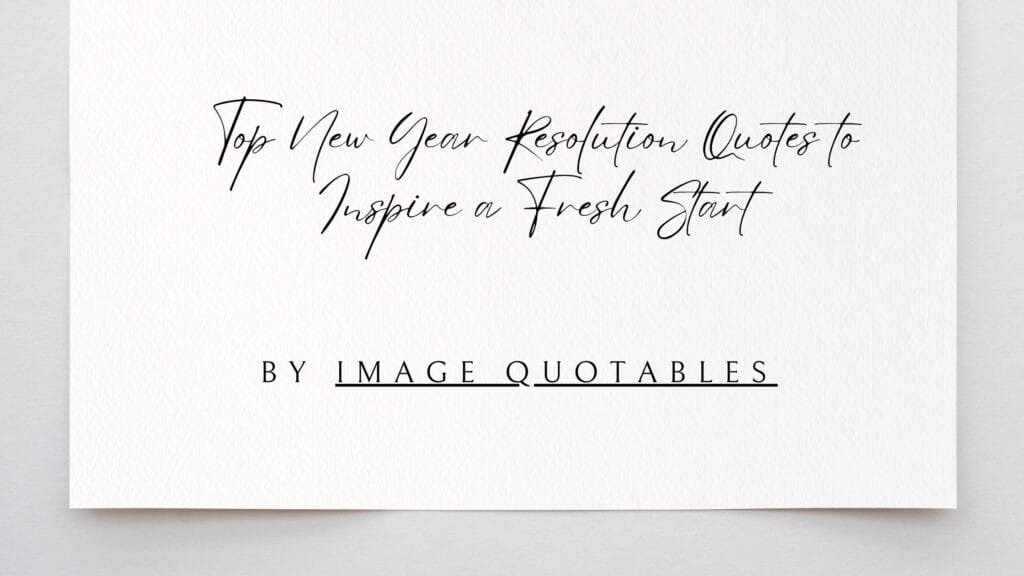 Top New Year Resolution Quotes to
Inspire a Fresh Start
BY IMAGE QUOTABLES